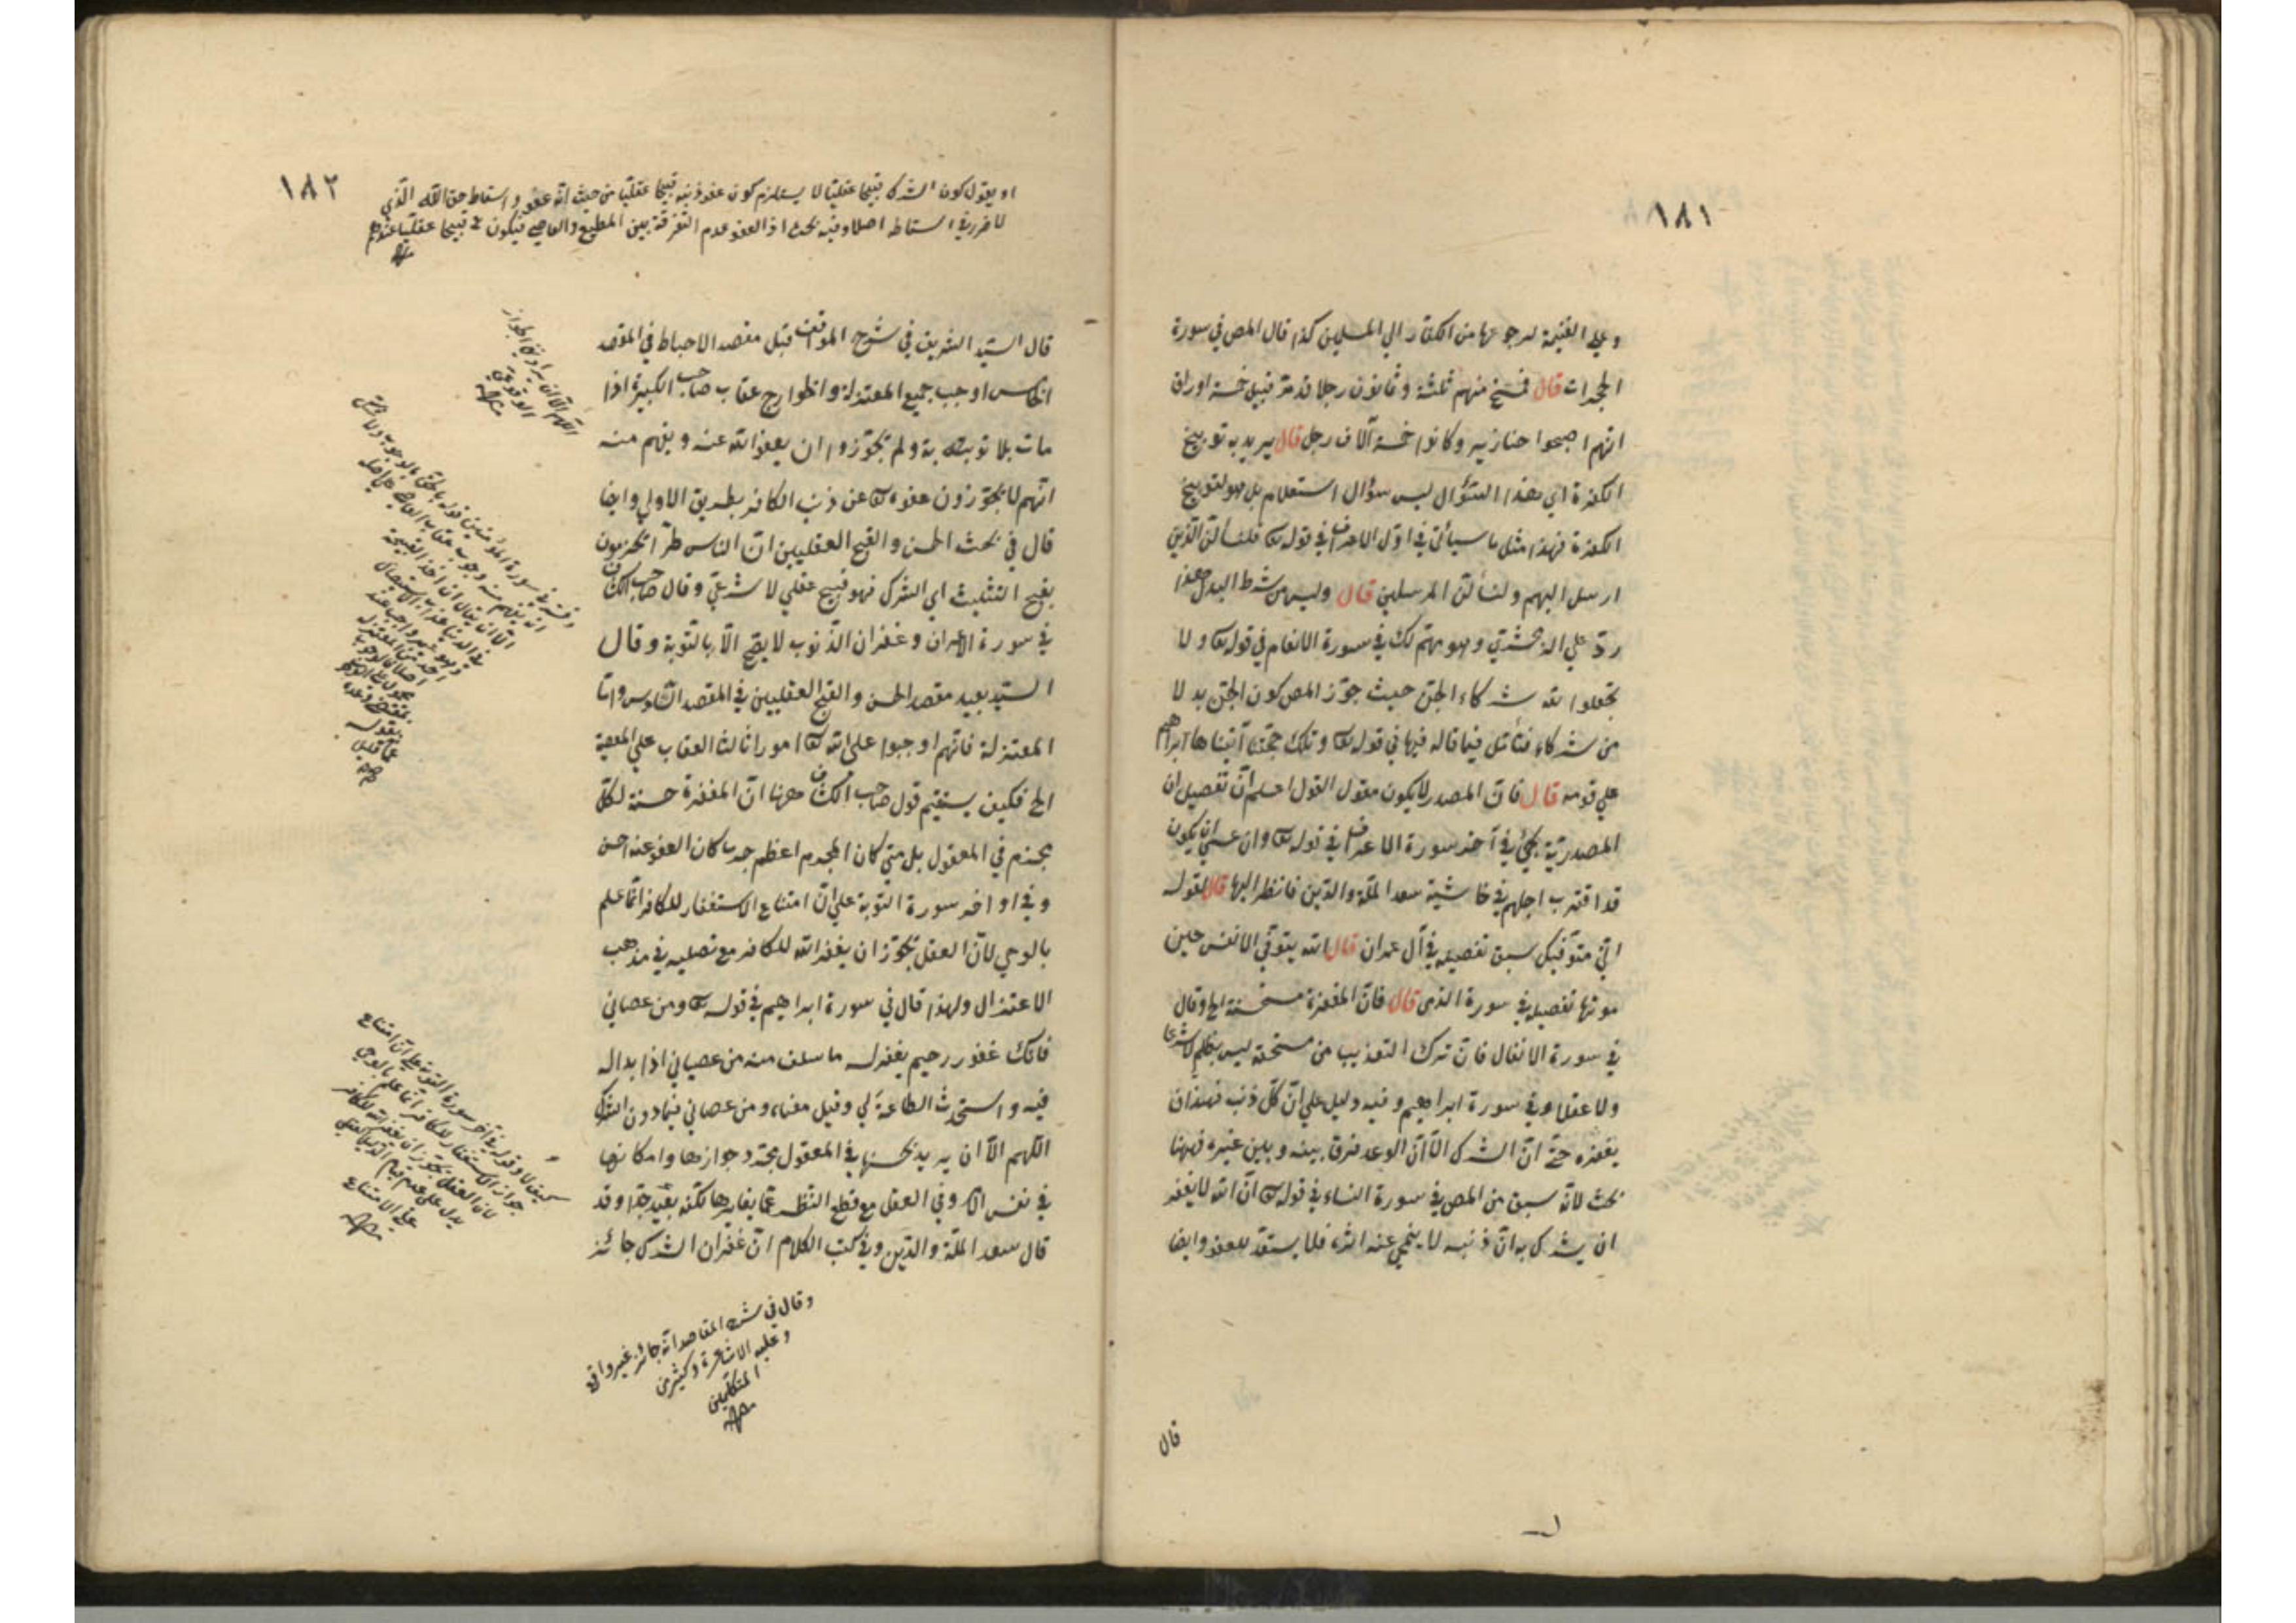 ١٨١
وعلي الغنيمة لرجوعها من الكفار الي المسلمين كذا قال المص في سورة
الحجرات قال فمسخ منهم ثلثة وثمانون رجلا قد مرّ قبيل خمسة اوراق
انهم اصبحوا خنازير وكانوا خمسة آلاف رجل قال يريد به توبيخ
الكفرة اي هذا السّؤال ليس سؤال استعلام بل هو لتوبيخ
الكفرة فهذا مثل ما سيأتي في اوّل الاعراف في قوله تعا فلنسألنّ الّذين
ارسل اليهم ولنسألنّ المرسلين قال وليس من شرط البدل هذا
ردّ علي الزمخشري وهو متمسّك في سورة الانعام في قوله تعا ولا
تجعلوا لله شركاء الجنّ حيث جوّز المص كون الجنّ بدلا
من شركاء فتأمّل فيما قاله فيها في قوله تعا وتلك حجّتنا آتيناها ابراهيم
علي قومه قال فانّ المصدر لا يكون مقول القول اعلم انّ تفصيل ان
المصدريّة يجئ في آخر سورة الاعراف في قوله تعا وان عسي ان يكون
قد اقترب اجلهم في حاشية سعد الملّة والدّين فانظر اليها قال لقوله
انّي متوفّيك سبق تفصيله في آل عمران قال الله يتوفّي الانفس حين
موتها تفصيله في سورة الزمر قال فانّ المغفرة مستحسنة الخ وقال
في سورة الانفال فانّ ترك التعذيب من مستحقه ليس بظلم لا شرعا
ولا عقلا وفي سورة ابراهيم وفيه دليل علي انّ كلّ ذنب فلله ان
يغفره حتّي انّ الشرك الّا انّ الوعد فرق بينه وبين غيره فههنا
بحث لانّه سبق من المص في سورة النساء في قوله تعا انّ الله لا يغفر
ان يشرك به انّ ذنبه لا ينمحي عنه اثره فلا يستعدّ للعفو وايضا
قال
١٨٢
او يقول كون الشرك قبيحا عقليّا لا يستلزم كون عفو ذنبه قبيحا عقليّا من حيث انّه عفو واسقاط حقّ الله الّذي
لا ضرر في اسقاطه اصلا وفيه بحث اذ العفو عدم التفرقة بين المطيع والعاصي فيكون قبيحا عقليّا عندهم
قال السّيّد الشريف في شرح المواقف قبل مقصد الاحباط في المقصد
الخامس اوجب جميع المعتزلة والخوارج عقاب صاحب الكبيرة اذا
مات بلا توبة ولم يجوّزوا ان يعفو الله عنه ويفهم منه
انّهم لا يجوّزون عفوه تعا عن ذنب الكافر بطريق الاولي وايضا
قال في بحث الحسن والقبح العقليين انّ الناس طرّا يجزمون
بقبح التثليث اي الشرك فهو قبيح عقلي لا شرعيّ وقال صاحب الكشاف
في سورة آل عمران وغفران الذّنوب لا يصحّ الّا بالتّوبة وقال
السّيّد بعيد مقصد الحسن والقبح العقليين في المقصد السّادس وامّا
المعتزلة فانّهم اوجبوا علي الله تعا امورا ثالثها العقاب علي المعصية
الخ فكيف يستقيم قول صاحب الكشاف ههنا انّ المغفرة حسنة لكلّ
مجرم في المعقول بل متي كان المجرم اعظم جرما كان العفو عنه احسن
وفي اواخر سورة التّوبة علي انّ امتناع الاستغفار للكافر انّما علم
بالوحي لانّ العقل يجوّز ان يغفر الله للكافر مع تصلّبه في مذهب
الاعتزال ولهذا قال في سورة ابراهيم في قوله تعا ومن عصاني
فانّك غفور رحيم يغفر له ما سلف منه من عصياني اذا بدا له
فيه واستحدث الطاعة لي وقيل معناه ومن عصاني فيما دون الشرك
اللهم الّا ان يريد بحسنها في المعقول مجرّد جوازها وامكانها
في نفس الامر وفي العقل مع قطع النّظر عمّا يغايرها لكنّه بعيد جدّا وقد
قال سعد الملّة والدّين وفي كتب الكلام انّ غفران الشرك جائز
وقال في شرح المقاصد انّه جائز غير واقع
وعليه الاشاعرة وكثير من
المتكلّمين
اللهم الّا ان
جواز الاستغفار للكافر انّما علم بالوحي
لانّ العقل يجوّز ان يغفر الله للكافر
علي الامتناع